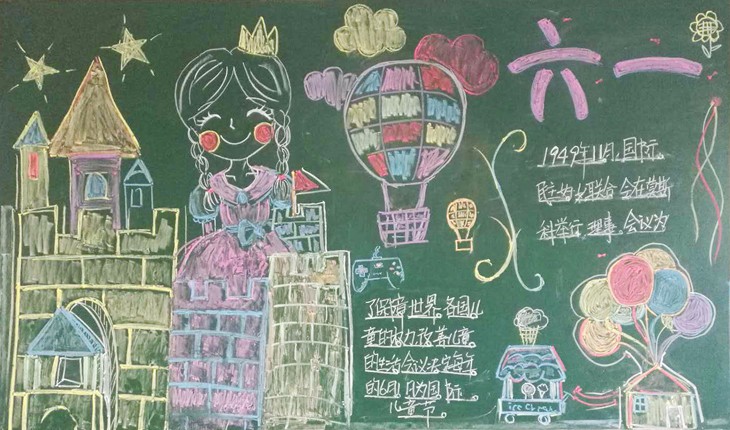 六一
1949年11月.国际
民主妇女联合会在莫斯
科举行.理事.会议为
了保障世界.各国儿
童的权力改善儿童.
的生活会议决定每年
的6月1日为国际.
儿童节。